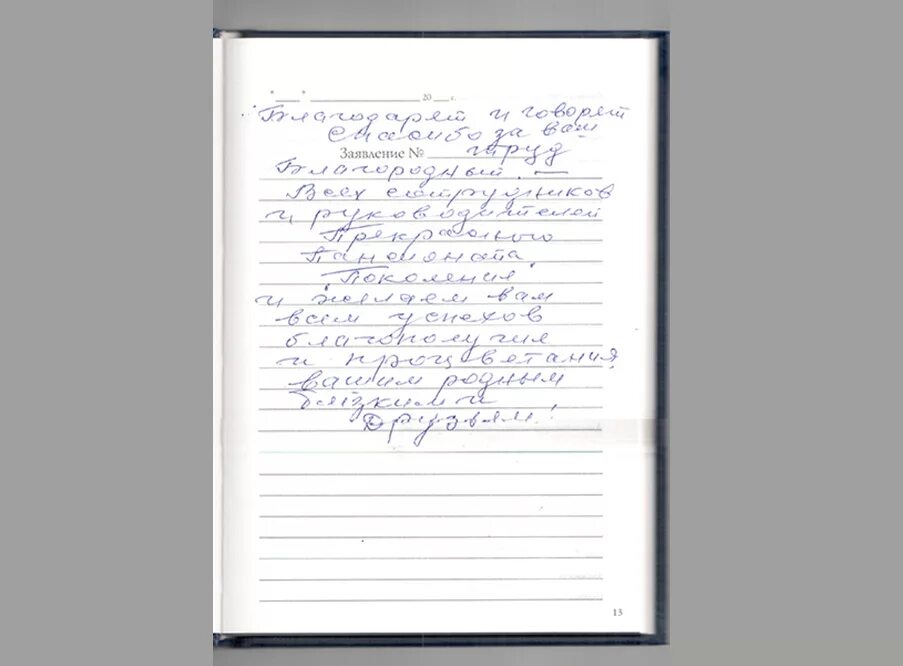 "___" ______________ 20 ___ г.
Благодарят и говорят
Спасибо за ваш
Заявление № труд
Благородный. —
Всех сотрудников
и руководителей
Прекрасного
Пансионата
"Поколения"
и желаем вам
всем успехов
благополучия
и процветания,
вашим родным
близким и
Друзьям!
13